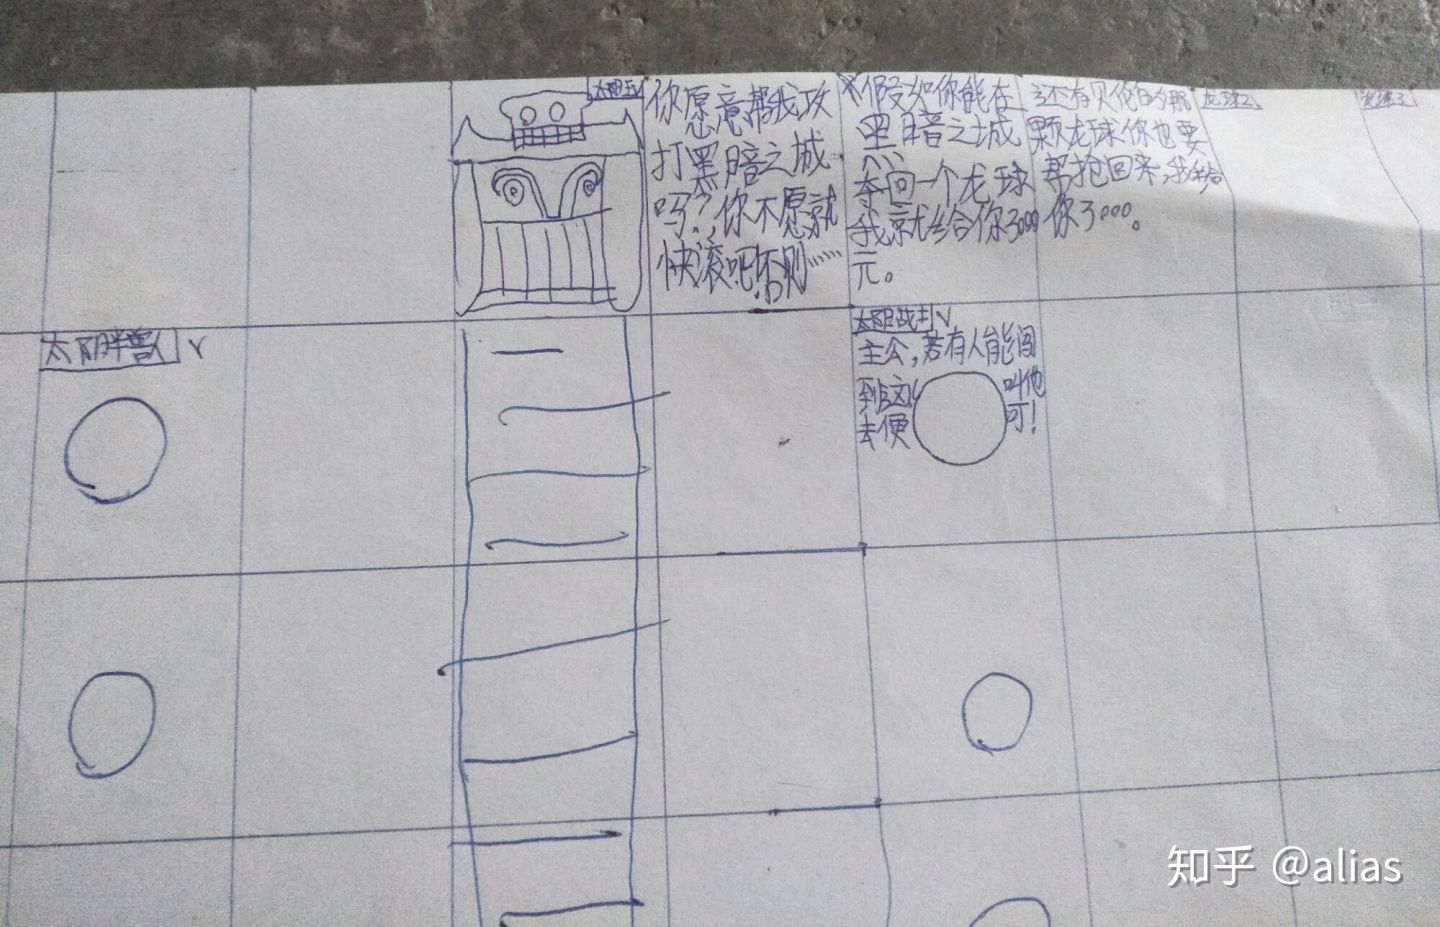 太阳王
你愿意帮我攻
打黑暗之城
吗?你不愿就
快滚吧否则……
假如你能在
黑暗之城
夺回一个龙球
我就给你3000
元。
还有贝伦的那
颗龙球你也要
帮抢回来,我给
你3000。
龙球2
龙球3
太阳胖兽
太阳战士
主公,若有人能闯
到这儿叫他
去便可!
知乎 @alias